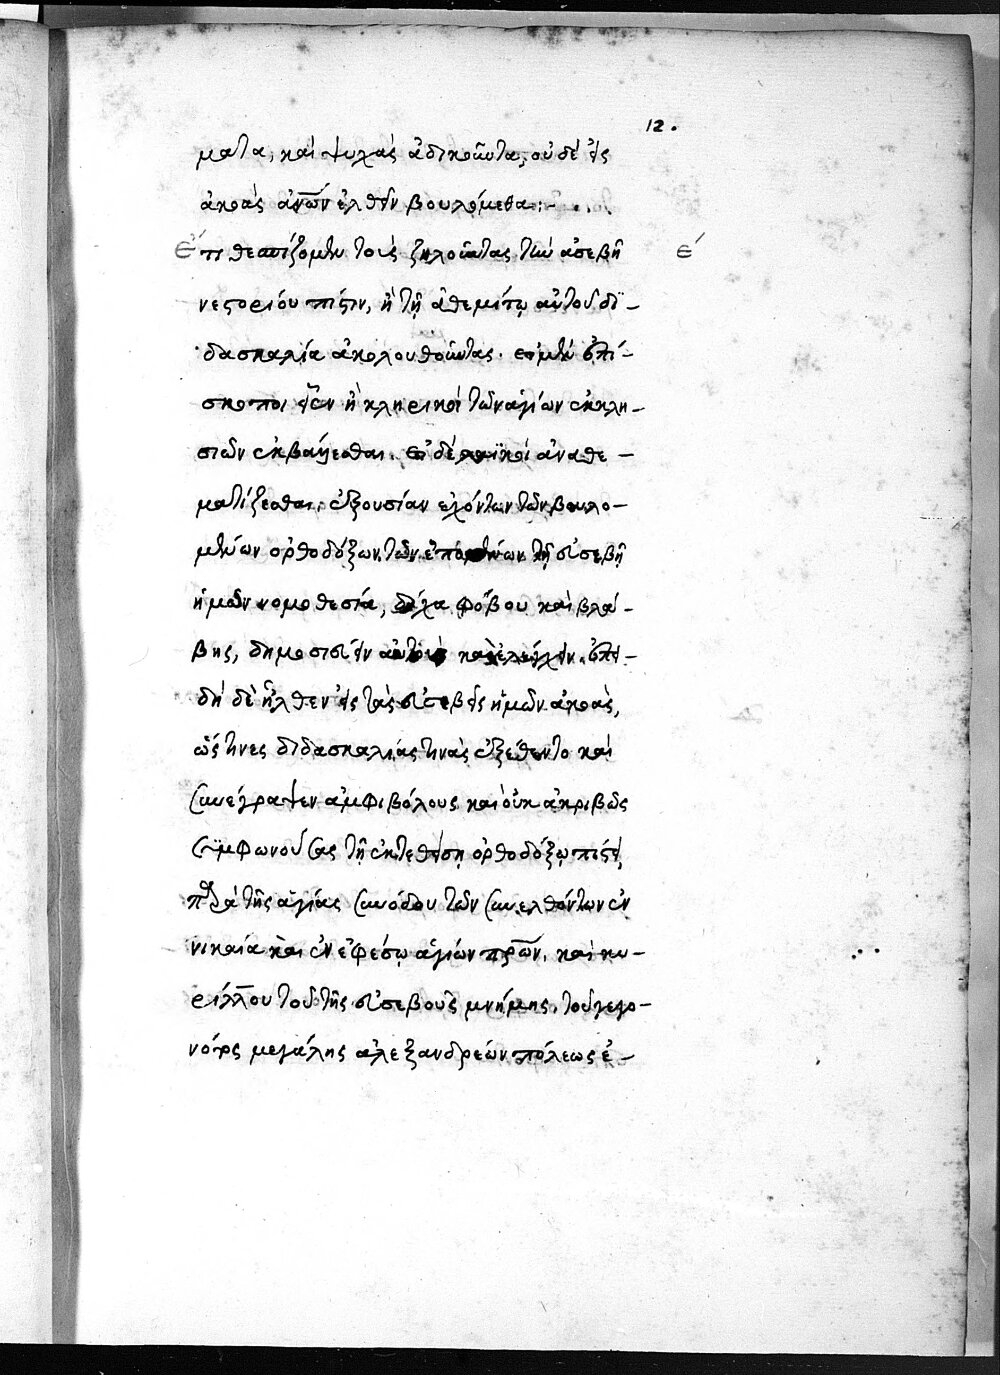 12.
ματα, καὶ ψυχὰς ἀδικοῦντα, οὐδὲ εἰς
ἀκοὰς ἀνων ἐλθεῖν βουλόμεθα:-
Ἐπιθεσπίζομεν τοὺς ζηλοῦντας τὴν ἀσεβῆ ε΄
νεστορίου πίστιν, ἢ τῇ ἀθεμίτῳ αὐτοῦ δι-
δασκαλία ἀκολουθοῦντας. εἰ μὲν ἐπί-
σκοποι εἶεν ἢ κληρικοὶ τῶν ἁγίων ἐκκλη-
σιῶν ἐκβάλλεσθαι. εἰ δὲ λαϊκοὶ ἀναθε-
ματίζεσθαι, ἐξουσίαν ἐχόντων τῶν βουλο-
μένων ὀρθοδόξων, τῶν ἑπομένων τῇ εὐσεβῆ
ἡμῶν νομοθεσία, δίχα φόβου καὶ βλά-
βης, δημοσιεύειν αὐτοὺς καὶ ἐλέγχειν. ἐπει-
δὴ δὲ ἦλθεν εἰς τὰς εὐσεβεῖς ἡμῶν ἀκοὰς,
ὥς τινες διδασκαλίας τινὰς ἐξέθεντο καὶ
συνέγραψεν ἀμφιβόλους καὶ οὐκ ἀκριβῶς
συμφωνούσας τῇ ἐκτεθείση ὀρθοδόξῳ πίστει,
παρὰ τῆς ἁγίας συνόδου τῶν συνελθόντων ἐν
νικαία καὶ ἐν ἐφέσῳ ἁγίων πρων, καὶ κυ-
ρίλλου τοῦ τῆς εὐσεβοῦς μνήμης, τοῦ γεγο-
νότος μεγάλης ἀλεξανδρέων πόλεως ἐ-